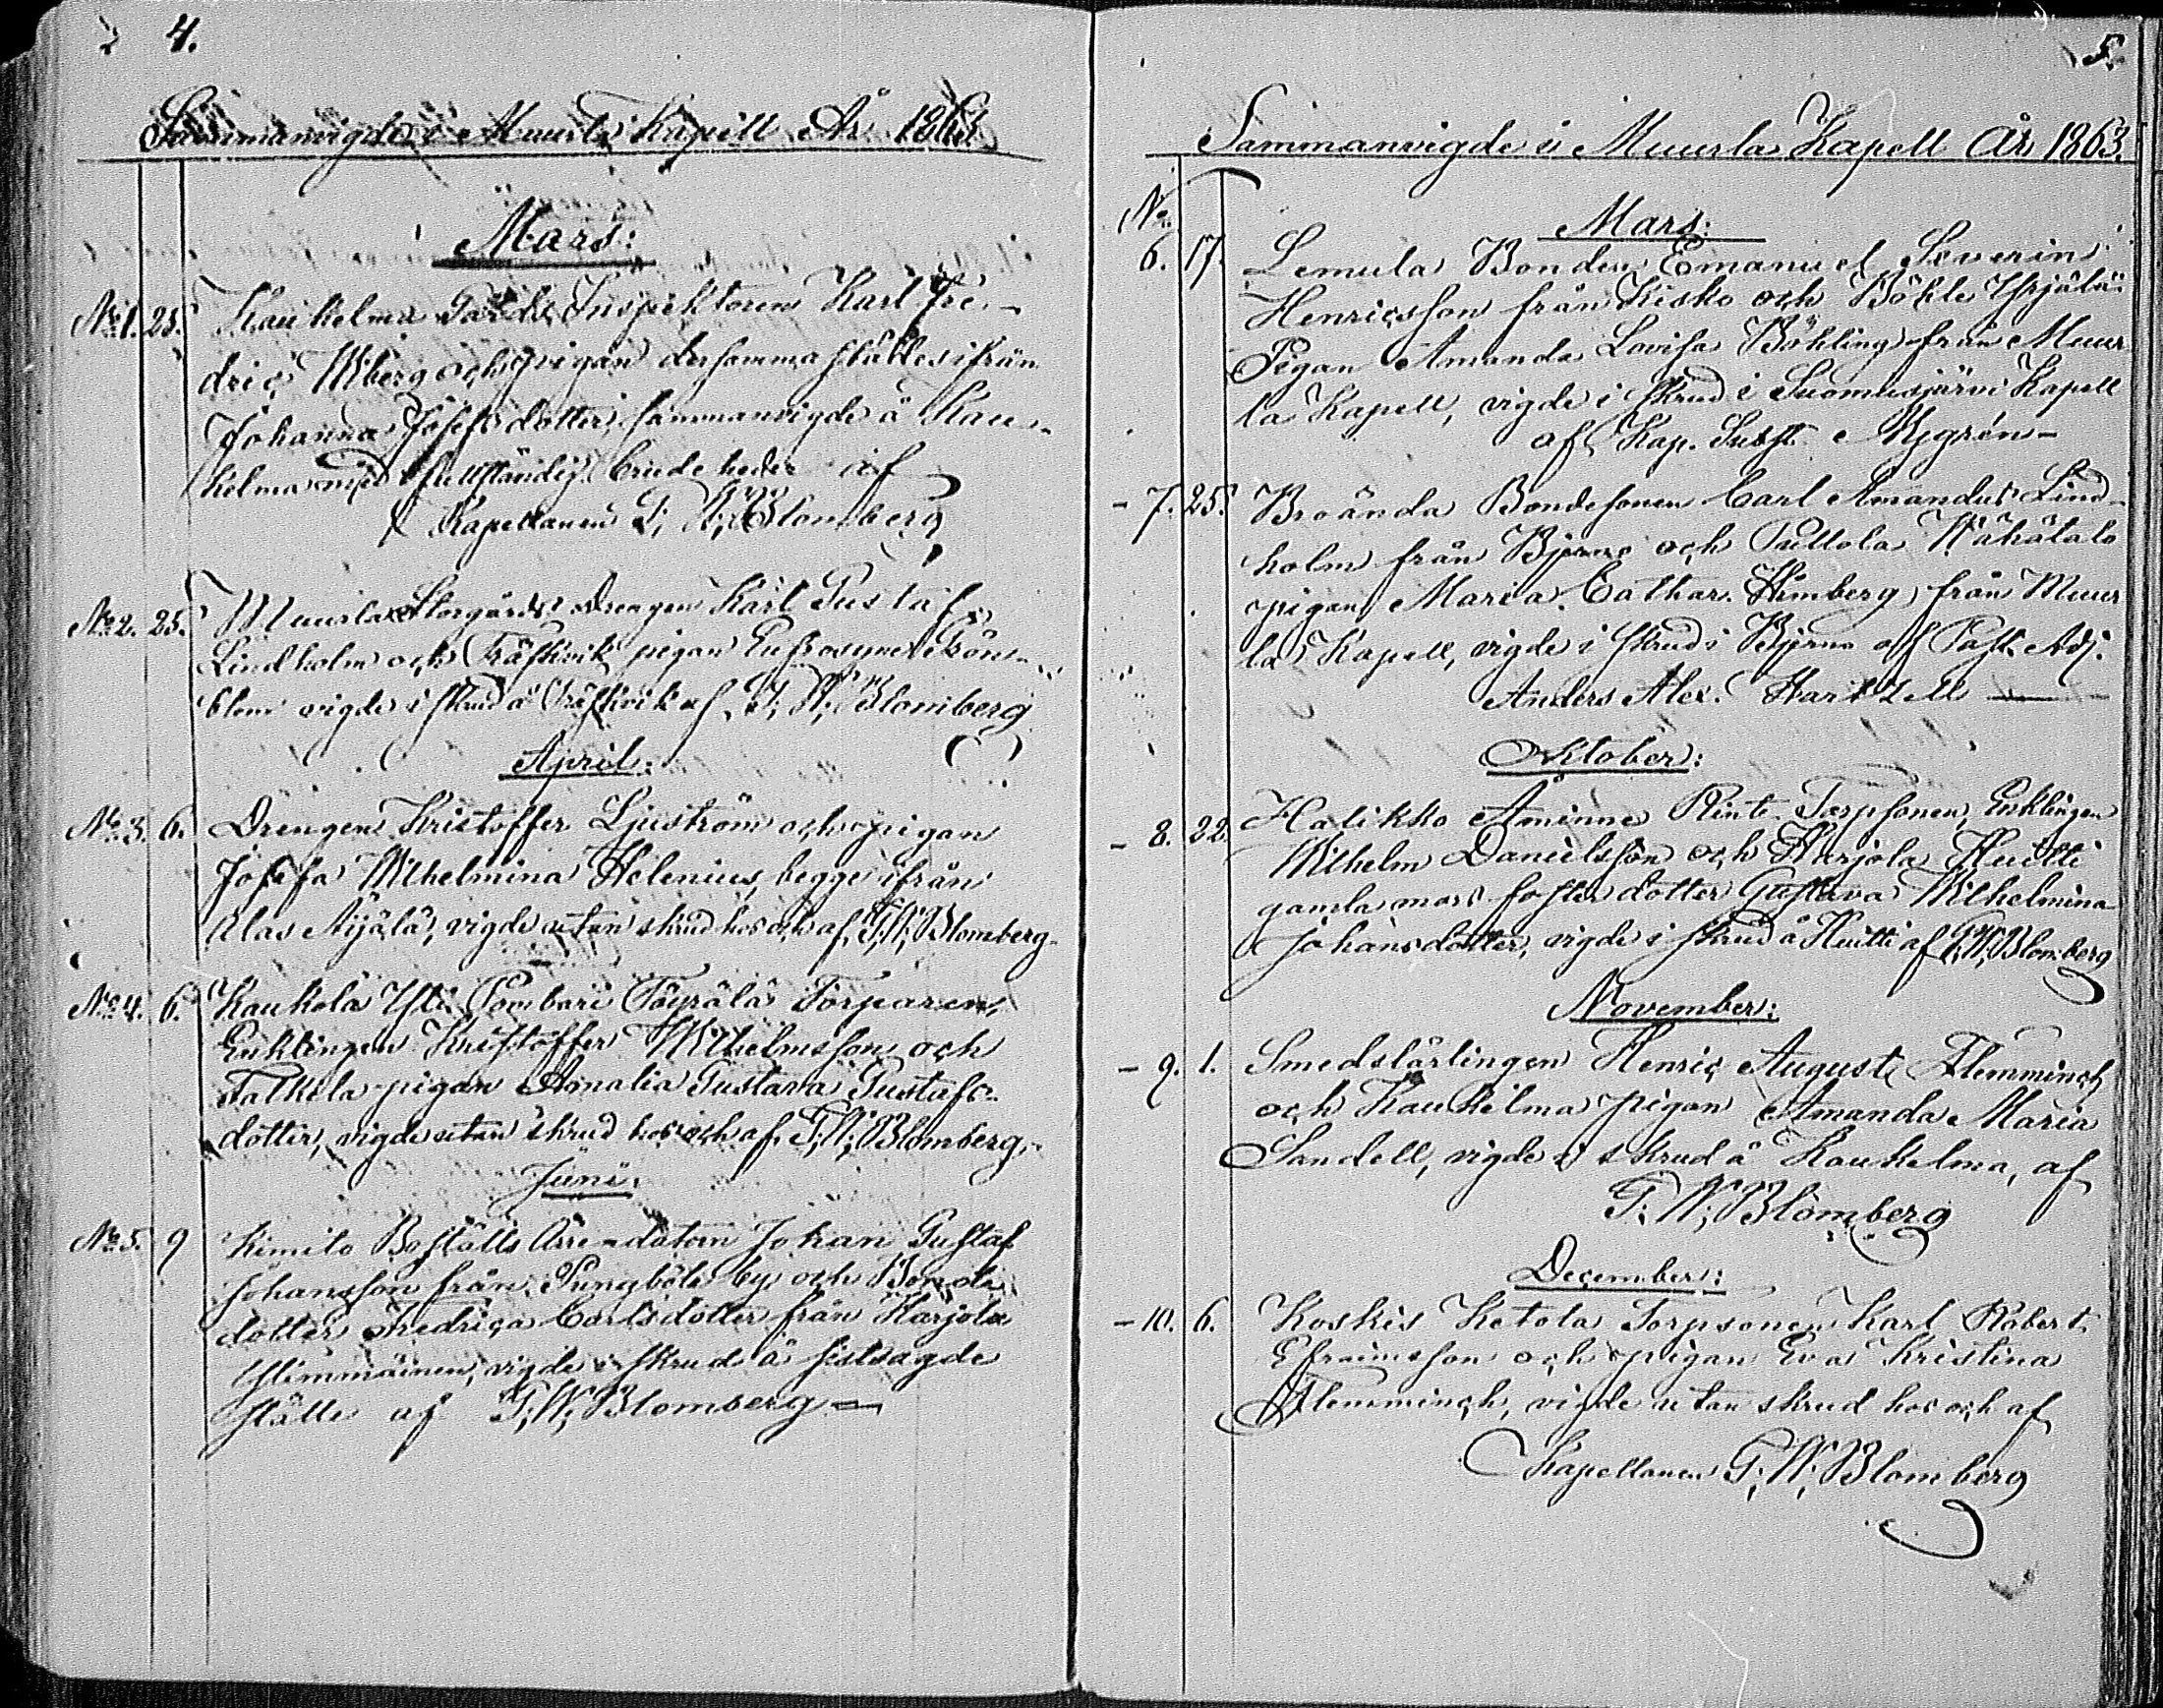 4.
Sammanvigde i Muurla Kapell År 1863.
Mars:
No 1. 25. Kaukelma Gårds Inspektoren Karl Fre-
dric Wiberg och pigan dersammastädes ifrån
Johanna Josefsdotter, sammanvigde å Kau-
kelma med fullständig brudeheder af
Kapellanen G. W. Blomberg
No 2. 25. Muurla Storgårds Drengen Karl Gustaf
Lindholm och Träskvik pigan Eufrosyne Grön-
blom vigde i skrud å Träskvik af G. W. Blomberg
April:
No 3. 6. Drengen Kristoffer Ljuström och pigan
Josefa Wilhelmina Helenius, begge ifrån
Alas Aijälä, vigde utan skrud hos och af G. W. Blomberg
No 4. 6. Kaukola Yli Pombari Töyrälä Torparen,
Enklingen Kristoffer Wilhelmsson och
pigan Amalia Gustava Gustafs-
dotter, vigde utan skrud hos och af G. W. Blomberg.
Juni.
No 5. 9 Kimito Boställs Arrendatorn Johan Gustaf
Johansson från Pungböle by och Bonde
dotter Fredrica Carlsdotter från Harjola
Ylimmäinen, vigde i skrud å sistsagde
ställe af G. W. Blomberg —
5.
Sammanvigde i Muurla Kapell År 1863.
No
Mars:
6. 17. Lemula Bonden Emanuel Severin
Henricsson från Kisko och Böhle Yrjälä
Pigan Amanda Lovisa Böhling från Muur
la Kapell, vigde i skrud i Suomusjärvi Kapell
af Kap. Subst. Mygrén -
- 7. 25. Broända Bondesonen Carl Amandus Lind-
holm från Bjerno och Puttola Wähätalo
pigan Maria Cathar. Himberg från Muur
la Kapell, vigde i skrud i Bjerno af Past. Adj.
Anders Alex. Hartzell —
Oktober:
- 8. 22. Halikko Åminne Rinte Torpsonen, Enklingen
Wilhelm Danielsson och Harjola Huitti
gamla mors fosterdotter Gustava Wilhelmina
Johansdotter, vigde i skrud å Huitti af G. W. Blomberg
November:
- 9. 1. Smedslärlingen Henric August Flemminch
och Kaukelma pigan Amanda Maria
Sandell, vigde i skrud å Kaukelma, af
G. W. Blomberg
December:
- 10. 6. Koskis Ketola Torpsonen Karl Robert
Efraimsson och pigan Eva Kristina
Flemminch, vigde utan skrud hos och af
Kapellanen G. W. Blomberg